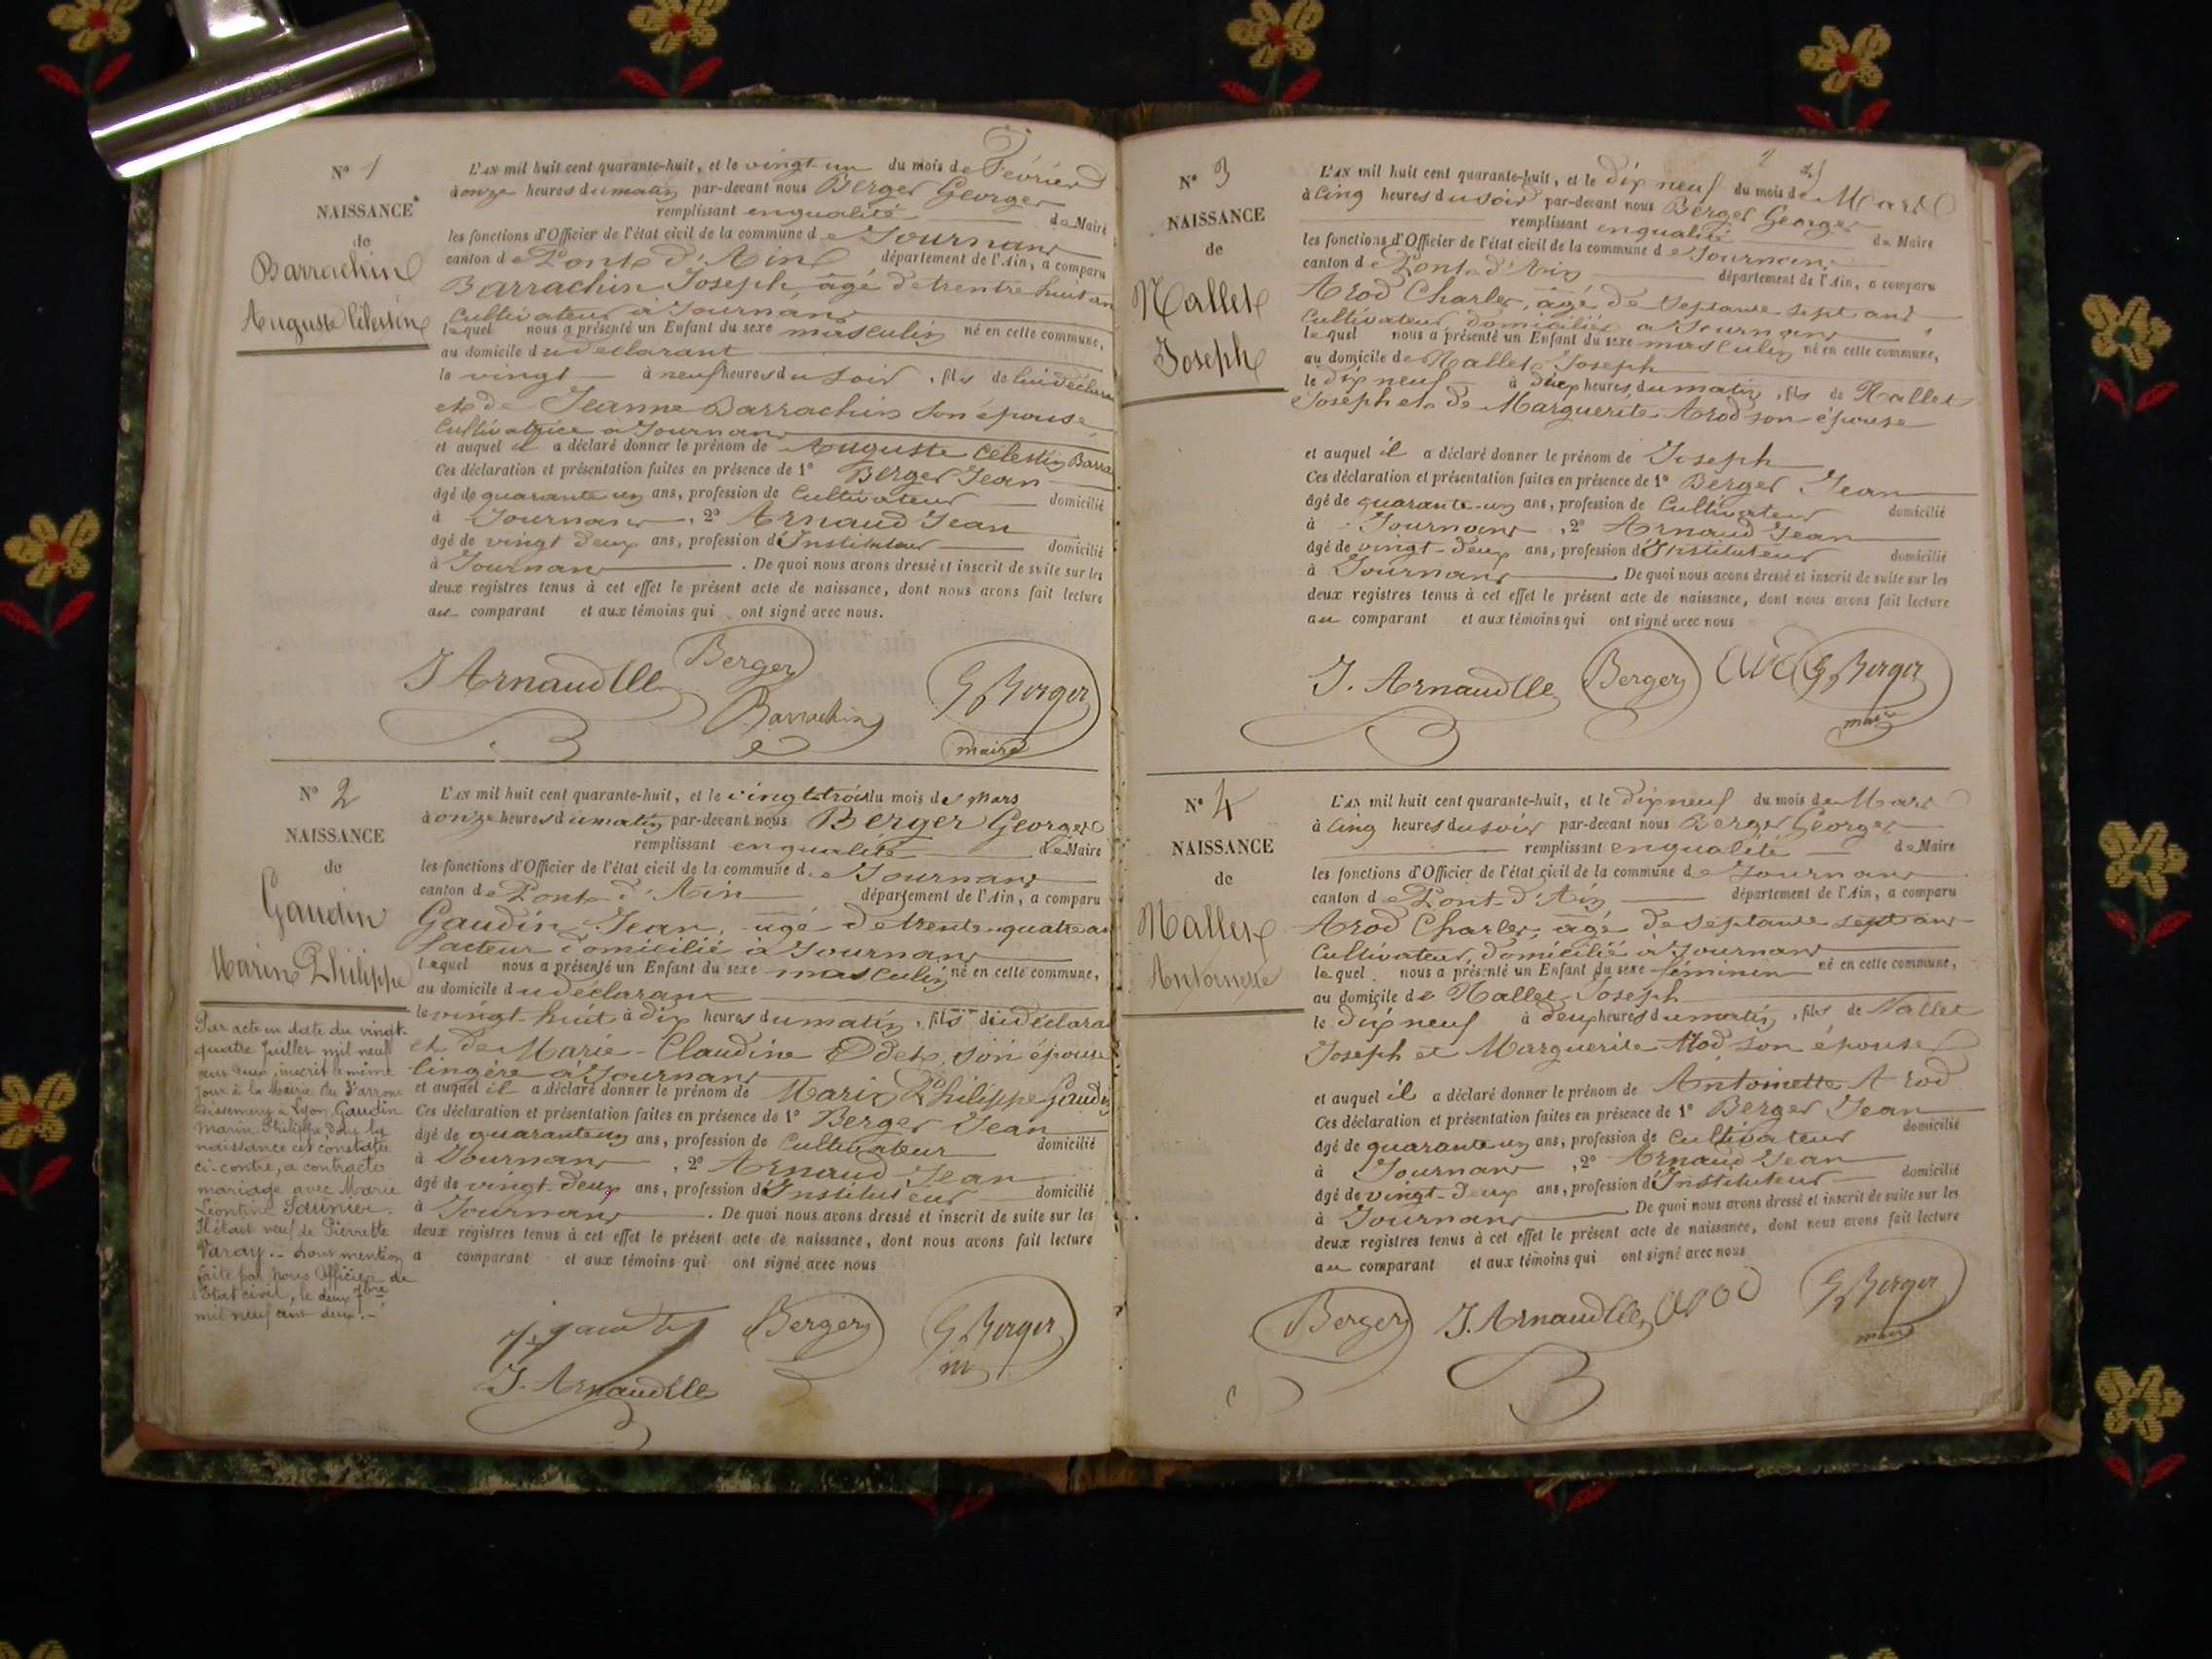 N° 1
NAISSANCE
de
Barrachin
Auguste Célestin
L'AN mil huit cent quarante-huit, et le vingt-un du mois de Février
à onze heures du matin par-devant nous Berger George
remplissant en qualité de Maire
les fonctions d'Officier de l'état civil de la commune de Journans
canton de Pont d'Ain département de l'Ain, a comparu
Barrachin Joseph, âgé de trente huit an
Cultivateur à Journans
lequel nous a présenté un Enfant du sexe masculin né en cette commune,
au domicile du déclarant
le vingt à neuf heures du soir, fils de lui déclara
et de Jeanne Barrachin son épouse
Cultivatrice à Journans
et auquel il a déclaré donner le prénom de Auguste Célestin Barra
Ces déclaration et présentation faites en présence de 1° Berger Jean
âgé de quarante un ans, profession de Cultivateur domicilié
à Journans, 2° Arnaud Jean
âgé de vingt deux ans, profession d'Instituteur domicilié
à Journans. De quoi nous avons dressé et inscrit de suite sur les
deux registres tenus à cet effet le présent acte de naissance, dont nous avons fait lecture
au comparant et aux témoins qui ont signé avec nous.
Berger
J Arnaud
G Berger
Barrachin
maire
N° 2
NAISSANCE
de
Gaudin
Marin Philippe
L'AN mil huit cent quarante-huit, et le vingt trois du mois de Mars
à onze heures du matin par-devant nous Berger George
remplissant en qualité de Maire
les fonctions d'Officier de l'état civil de la commune de Journans
canton de Pont d'Ain département de l'Ain, a comparu
Gaudin Jean, agé de trente quatre an
facteur domicilié à Journans
lequel nous a présenté un Enfant du sexe masculin né en cette commune,
au domicile du déclarant
le vingt-huit à dix heures du matin, fils du déclara
et de Marie-Claudine Odet, son épouse
lingère à Journans
et auquel il a déclaré donner le prénom de Marin Philippe Gaudin
Ces déclaration et présentation faites en présence de 1° Berger Jean
âgé de quarante un ans, profession de Cultivateur domicilié
à Journans, 2° Arnaud Jean
âgé de vingt-deux ans, profession d'Instituteur domicilié
à Journans. De quoi nous avons dressé et inscrit de suite sur les
deux registres tenus à cet effet le présent acte de naissance, dont nous avons fait lecture
a comparant et aux témoins qui ont signé avec nous
Berger
G Berger
m
J. Arnaud
Par acte en date du vingt-
quatre Juillet mil neuf
cent deux, inscrit le même
jour à la Mairie du arron
dissement à Lyon, Gaudin
Marin Philippe dont la
naissance est constatée
ci-contre, a contracté
mariage avec Marie
Léontine Saunier.
Il était veuf de Pierrette
Varay. - dont mention
faite par nous Officier de
l'Etat civil, le deux 7bre
mil neuf cent deux. -
N° 3
NAISSANCE
de
Nallet
Joseph
2
L'AN mil huit cent quarante-huit, et le dix neuf du mois de Mars
à cinq heures du soir par-devant nous Berger George
remplissant en qualité de Maire
les fonctions d'Officier de l'état civil de la commune de Journans
canton de Pont-d'Ain département de l'Ain, a comparu
Arod Charles, âgé de Septante-sept ans
Cultivateur domicilié à Journans
lequel nous a présenté un Enfant du sexe masculin né en cette commune,
au domicile de Nallet Joseph
le dix neuf à deux heures du matin, fils de Nallet
Joseph et de Marguerite Arod son épouse
et auquel il a déclaré donner le prénom de Joseph
Ces déclaration et présentation faites en présence de 1° Berger Jean
âgé de quarante-un ans, profession de Cultivateur domicilié
à Journans, 2° Arnaud Jean
âgé de vingt-deux ans, profession d'Instituteur domicilié
à Journans. De quoi nous avons dressé et inscrit de suite sur les
deux registres tenus à cet effet le présent acte de naissance, dont nous avons fait lecture
au comparant et aux témoins qui ont signé avec nous
J. Arnaud Berger G Berger
maire
N° 4
NAISSANCE
de
Nallet
Antoinette
L'AN mil huit cent quarante-huit, et le dix neuf du mois de Mars
à cinq heures du soir par-devant nous Berger George
remplissant en qualité de Maire
les fonctions d'Officier de l'état civil de la commune de Journans
canton de Pont-d'Ain département de l'Ain, a comparu
Arod Charles, âgé de Septante sept ans
Cultivateur, domicilié à Journans
lequel nous a présenté un Enfant du sexe féminin né en cette commune,
au domicile de Nallet Joseph
le dix neuf à deux heures du matin, fils de Nallet
Joseph et Marguerite Arod son épouse
et auquel il a déclaré donner le prénom de Antoinette Arod
Ces déclaration et présentation faites en présence de 1° Berger Jean
âgé de quarante un ans, profession de Cultivateur domicilié
à Journans, 2° Arnaud Jean
âgé de vingt-deux ans, profession d'Instituteur domicilié
à Journans. De quoi nous avons dressé et inscrit de suite sur les
deux registres tenus à cet effet le présent acte de naissance, dont nous avons fait lecture
au comparant et aux témoins qui ont signé avec nous
Berger J. Arnaud Arod G Berger
maire